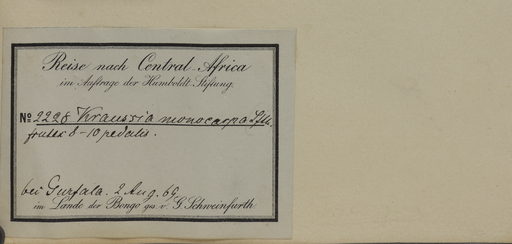 Reise nach Central-Africa
im Auftrage der Humboldt-Stiftung.
No 2228 Kraussia monocarpa Sfth.
frutex 8-10 pedalis.
bei Gurfala. 2 Aug. 69
im Lande der Bongo ges. v. G. Schweinfurth.